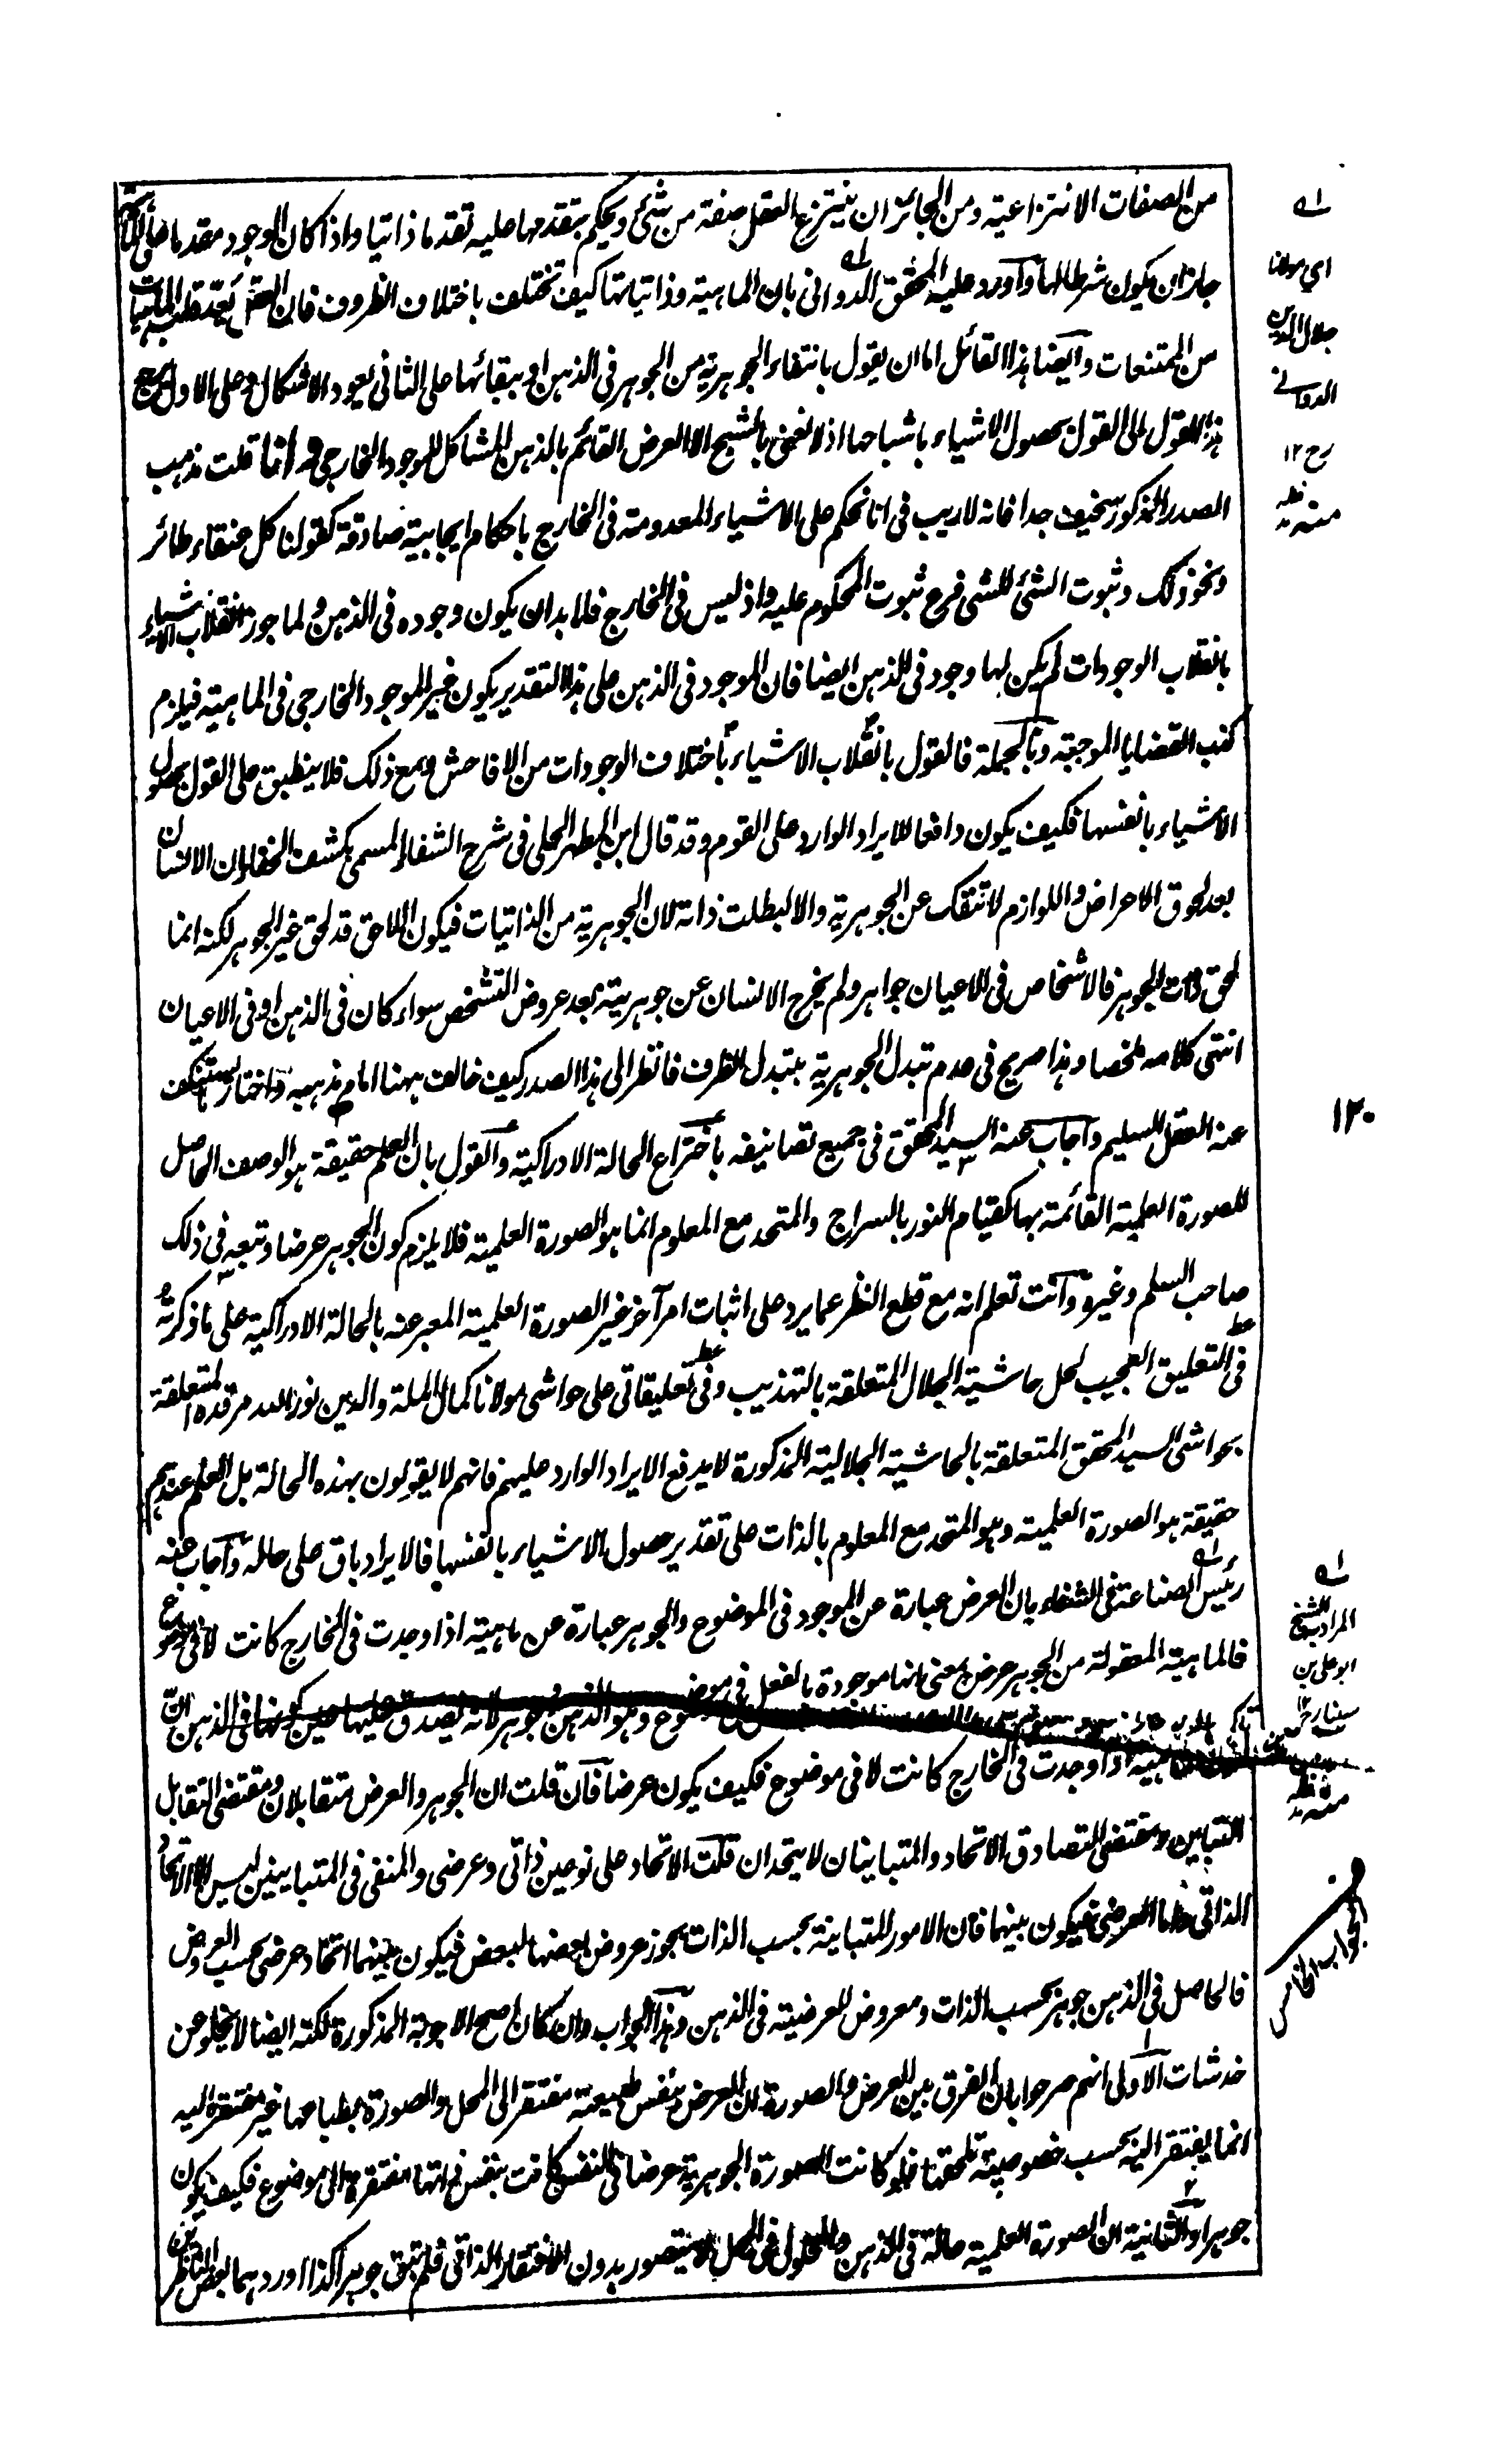 من الصفات الانتزاعية ومن الجائز ان ينتزع العقل صفة من شئ ويحكم بتقدمها عليه تقدما ذاتيا واذا كان الوجود مقدما على
جاز ان يكون شرطا لها وآورد عليه المحقق الدوانى بان الماهية وذاتياتها كيف تختلف باختلاف الظروف فان العقل يعد قلب الماهيات
من الممتنعات وآيضا هذا القائل اما ان يقول بانتفاء الجوهرية من الجوهر فى الذهن او ببقائها على الثانى يعود الاشكال وعلى الاول يرجع
هذا القول الى القول بحصول الاشياء باشباحها اذ لا نعنى بالشبح الا العرض القائم بالذهن المشاكل للموجود الخارجى وانما قلت مذهب
الصدر المذكور سخيف جدا فانه لا ريب فى انا نحكم على الاشياء المعدومة فى الخارج باحكام ايجابية صادقة كقولنا كل عنقاء طائر
ونحو ذلك وثبوت الشئ للشئ فرع ثبوت المحكوم عليه واذ ليس فى الخارج فلا بد ان يكون وجوده فى الذهن ولما جوز انقلاب الاشياء
بانقلاب الوجودات لم يكن لها وجود فى الذهن ايضا فان الموجود فى الذهن على هذا التقدير يكون غير الموجود الخارجى فى الماهية فيلزم
كذب القضايا الموجبة وبالجملة فالقول بانقلاب الاشياء باختلاف الوجودات من الافاحش ومع ذلك فلا ينطبق على القول بحصول
الاشياء بانفسها فكيف يكون دافعا للايراد الوارد على القوم وقد قال ابن المطهر الحلى فى شرح الشفاء المسمى بكشف الخفاء ان الانسان
بعد لحوق الاعراض واللوازم لا تنفك عن الجوهرية والا لبطلت ذاته لان الجوهرية من الذاتيات فيكون اللاحق قد لحق غير الجوهر لكنه انما
لحق ذات الجوهر فالاشخاص فى الاعيان جواهر ولم يخرج الانسان عن جوهريته بعد عروض التشخص سواء كان فى الذهن او فى الاعيان
انتهى كلامه ملخصا وهذا صريح فى عدم تبدل الجوهرية بتبدل الظرف فانظر الى هذا الصدر كيف خالف ههنا امام مذهبه واختار ما يستنكف
عنه العقل السليم وآجاب عنه السيد المحقق فى جميع تصانيفه باختراع الحالة الادراكية والقول بان العلم حقيقة هو الوصف الحاصل
للصورة العلمية القائمة بها كقيام النور بالسراج والمتحد مع المعلوم انما هو الصورة العلمية فلا يلزم كون الجوهر عرضا وتبعه فى ذلك
صاحب السلم وغيره وآنت تعلم انه مع قطع النظر عما يرد على اثبات امر آخر غير الصورة العلمية المعبر عنه بالحالة الادراكية على ما ذكرته
فى التعليق العجيب لحل حاشية الجلال المتعلقة بالتهذيب وفى تعليقاتى على حواشى مولانا كمال الملة والدين نور الله مرقده المتعلقة
بحواشى السيد المحقق المتعلقة بالحاشية الجلالية المذكورة لا يدفع الايراد الوارد عليهم فانهم لا يقولون بهذه الحالة بل العلم عندهم
حقيقة هو الصورة العلمية وهو المتحد مع المعلوم بالذات على تقدير حصول الاشياء بانفسها فالايراد باق على حاله وآجاب عنه
رئيس الصناعة فى الشفاء بان العرض عبارة عن الموجود فى الموضوع والجوهر عبارة عن ماهية اذا وجدت فى الخارج كانت لا فى موضوع
فالماهية المعقولة من الجوهر عرض بمعنى انها موجودة بالفعل فى موضوع وهو الذهن وجوهر لانه يصدق عليها حين كونها فى الذهن ان
ماهية اذا وجدت فى الخارج كانت لا فى موضوع فكيف يكون عرضا فآن قلت ان الجوهر والعرض متقابلان ومقتضى التقابل
التباين ومقتضى التصادق الاتحاد والمتباينان لا يتحدان قلت الاتحاد على نوعين ذاتى وعرضى والمنفى فى المتباينين ليس الا الاتحاد
الذاتى واما العرضى فيكون بينهما فان الامور المتباينة بحسب الذات يجوز عروض بعضها لبعض فيكون بينهما اتحاد عرضى بحسب العروض
فالحاصل فى الذهن جوهر بحسب الذات ومعروض للعرضية فى الذهن وهذا الجواب وان كان اصح الاجوبة المذكورة لكنه ايضا لا يخلو عن
خدشات الآولى انهم صرحوا بان الفرق بين العرض والصورة ان العرض بنفس طبيعته مفتقر الى المحل والصورة بطباعها غير مفتقرة اليه
انما يفتقر اليه بحسب خصوصية تلحقها فلو كانت الصورة الجوهرية عرضا فى النفس كانت بنفس ذاتها مفتقرة الى موضوع فكيف يكون
جوهرا والثانية ان الصورة العلمية حالة فى الذهن والحلول فى المحل لا يتصور بدون الافتقار الذاتى فلم تبق جوهرا كذا اوردهما بعض الناظرين
له
اي مولانا
جلال الدين
الدوانى
رح ١٢
منه
١٢٠
له
المراد به الشيخ
ابو على بن
سينا رح
منه
الجواب الخامس